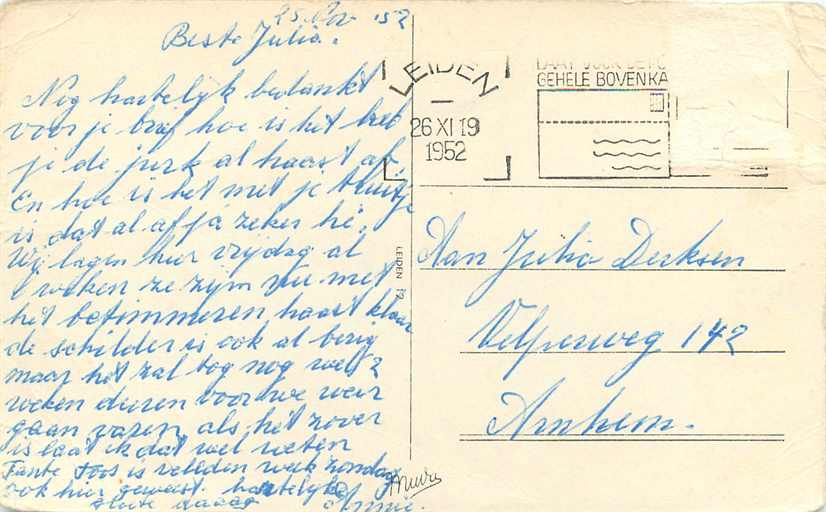 25 Nov '52
Beste Julia.
Nog hartelijk bedankt
voor je brief hoe is het heb
je de jurk al haast af
En hoe is het met je truitje
is dat al af ja zeker hè.
Wij lagen hier vrijdag al
weken ze zijn nu met
het betimmeren haast klaar
de schilder is ook al bezig
maar het zal tog nog wel 2
weken duren voor we weer
gaan varen als het zover
is laat ik dat wel weten
Tante Toos is verleden week zondag
ook hier geweest. hartelijke
groete
Annie.
LEIDEN
26 XI 19
1952
GEHELE BOVENKA
LEIDEN 12
Aan Julia Derksen
Velperweg 142
Arnhem.